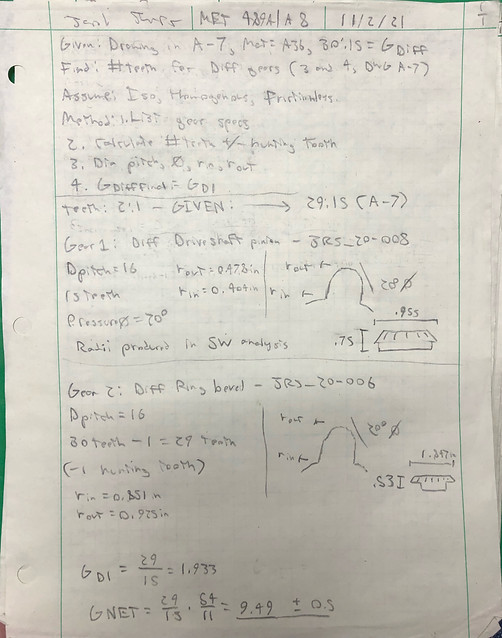 MET 489A A8 11/2/21
Given: Drawing in A-7, Mat= A36, 30:15 = G Diff
Find: # teeth for Diff gears (3 and 4, DWG A-7)
Assume: Iso, Homogenous, Frictionless.
Method: 1. List gear specs
2. Calculate # teeth +/- hunting tooth
3. Dia pitch, Ø, rin, rout
4. G Diff Final = G D1
Teeth: 2:1 - GIVEN: → 29:15 (A-7)
Gear 1: Diff Driveshaft pinion - JRS_20-008
Dpitch = 16 rout = 0.478in rout
15 teeth rin = 0.404in rin 20Ø
Pressure Ø = 20° .955
Radii produced in SW analysis .75
Gear 2: Diff Ring bevel - JRS_20-006
Dpitch = 16 rout 20° Ø
30 teeth - 1 = 29 teeth
(-1 hunting tooth) rin .53
rin = 0.851 in
rout = 0.925in
G D1 = 29/15 = 1.933
GNET = 29/15 · 54/11 = 9.49 ± 0.5